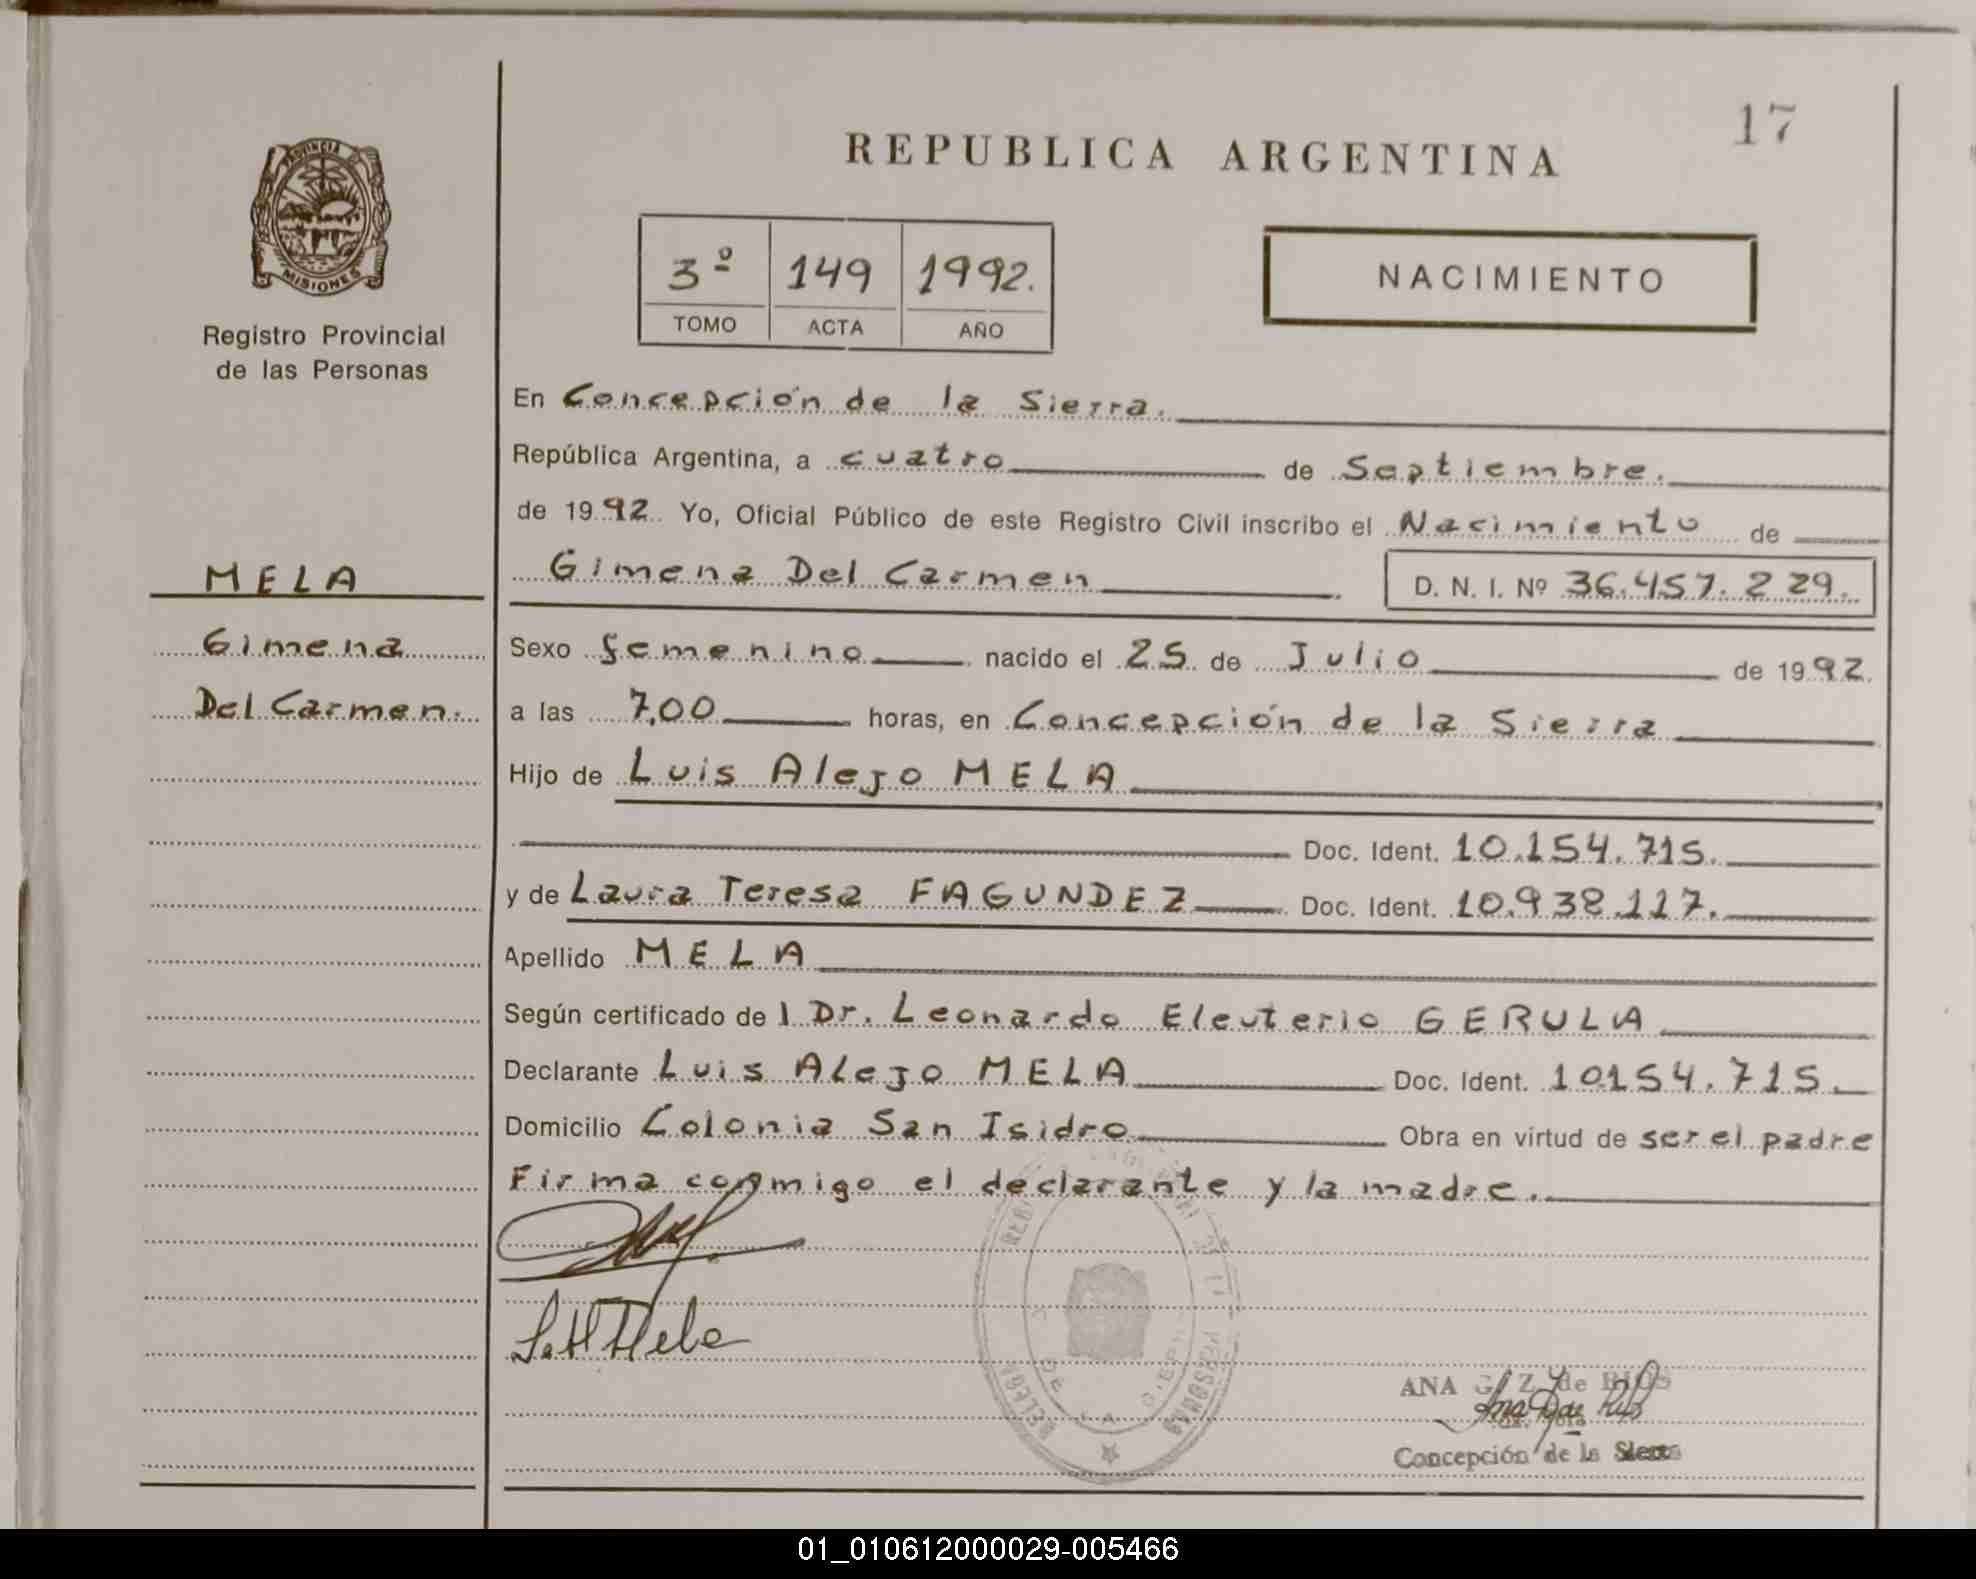 17
REPUBLICA ARGENTINA
PROVINCIA
MISIONES
Registro Provincial
de las Personas
3º 149 1992.
TOMO ACTA AÑO
NACIMIENTO
En Concepción de la Sierra.
República Argentina, a cuatro de Septiembre.
de 1992 Yo, Oficial Público de este Registro Civil inscribo el Nacimiento de
Gimena Del Carmen D. N. I. Nº 36.457.229.
MELA
Gimena
Del Carmen.
Sexo femenino nacido el 25 de Julio de 1992
a las 7,00 horas, en Concepción de la Sierra
Hijo de Luis Alejo MELA
Doc. Ident. 10.154.715.
y de Laura Teresa FAGUNDEZ Doc. Ident. 10.938.117.
Apellido MELA
Según certificado de l Dr. Leonardo Eleuterio GERULA
Declarante Luis Alejo MELA Doc. Ident. 10154.715.
Domicilio Colonia San Isidro Obra en virtud de ser el padre
Firma conmigo el declarante y la madre.
ANA de RIOS
Concepción de la Sierra
01_010612000029-005466